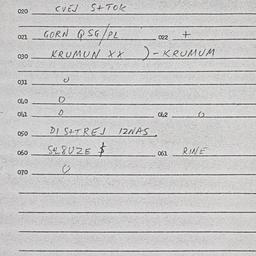 020 CVEJ S+TOK
021 GORN QSG/PL 022 +
030 KRUMUN XX )-KRUMUM
031 0
040 0
041 0 042 0
050 DIS+REJ IZNAS.
060 $ 061 RINE
070 0